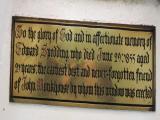 To the glory of God and in affectionate memory of
Edward Spedding who died June 20. 1855 aged
21 years, the earliest, best and never forgotten friend
of John Monkhouse by whom this window was erected